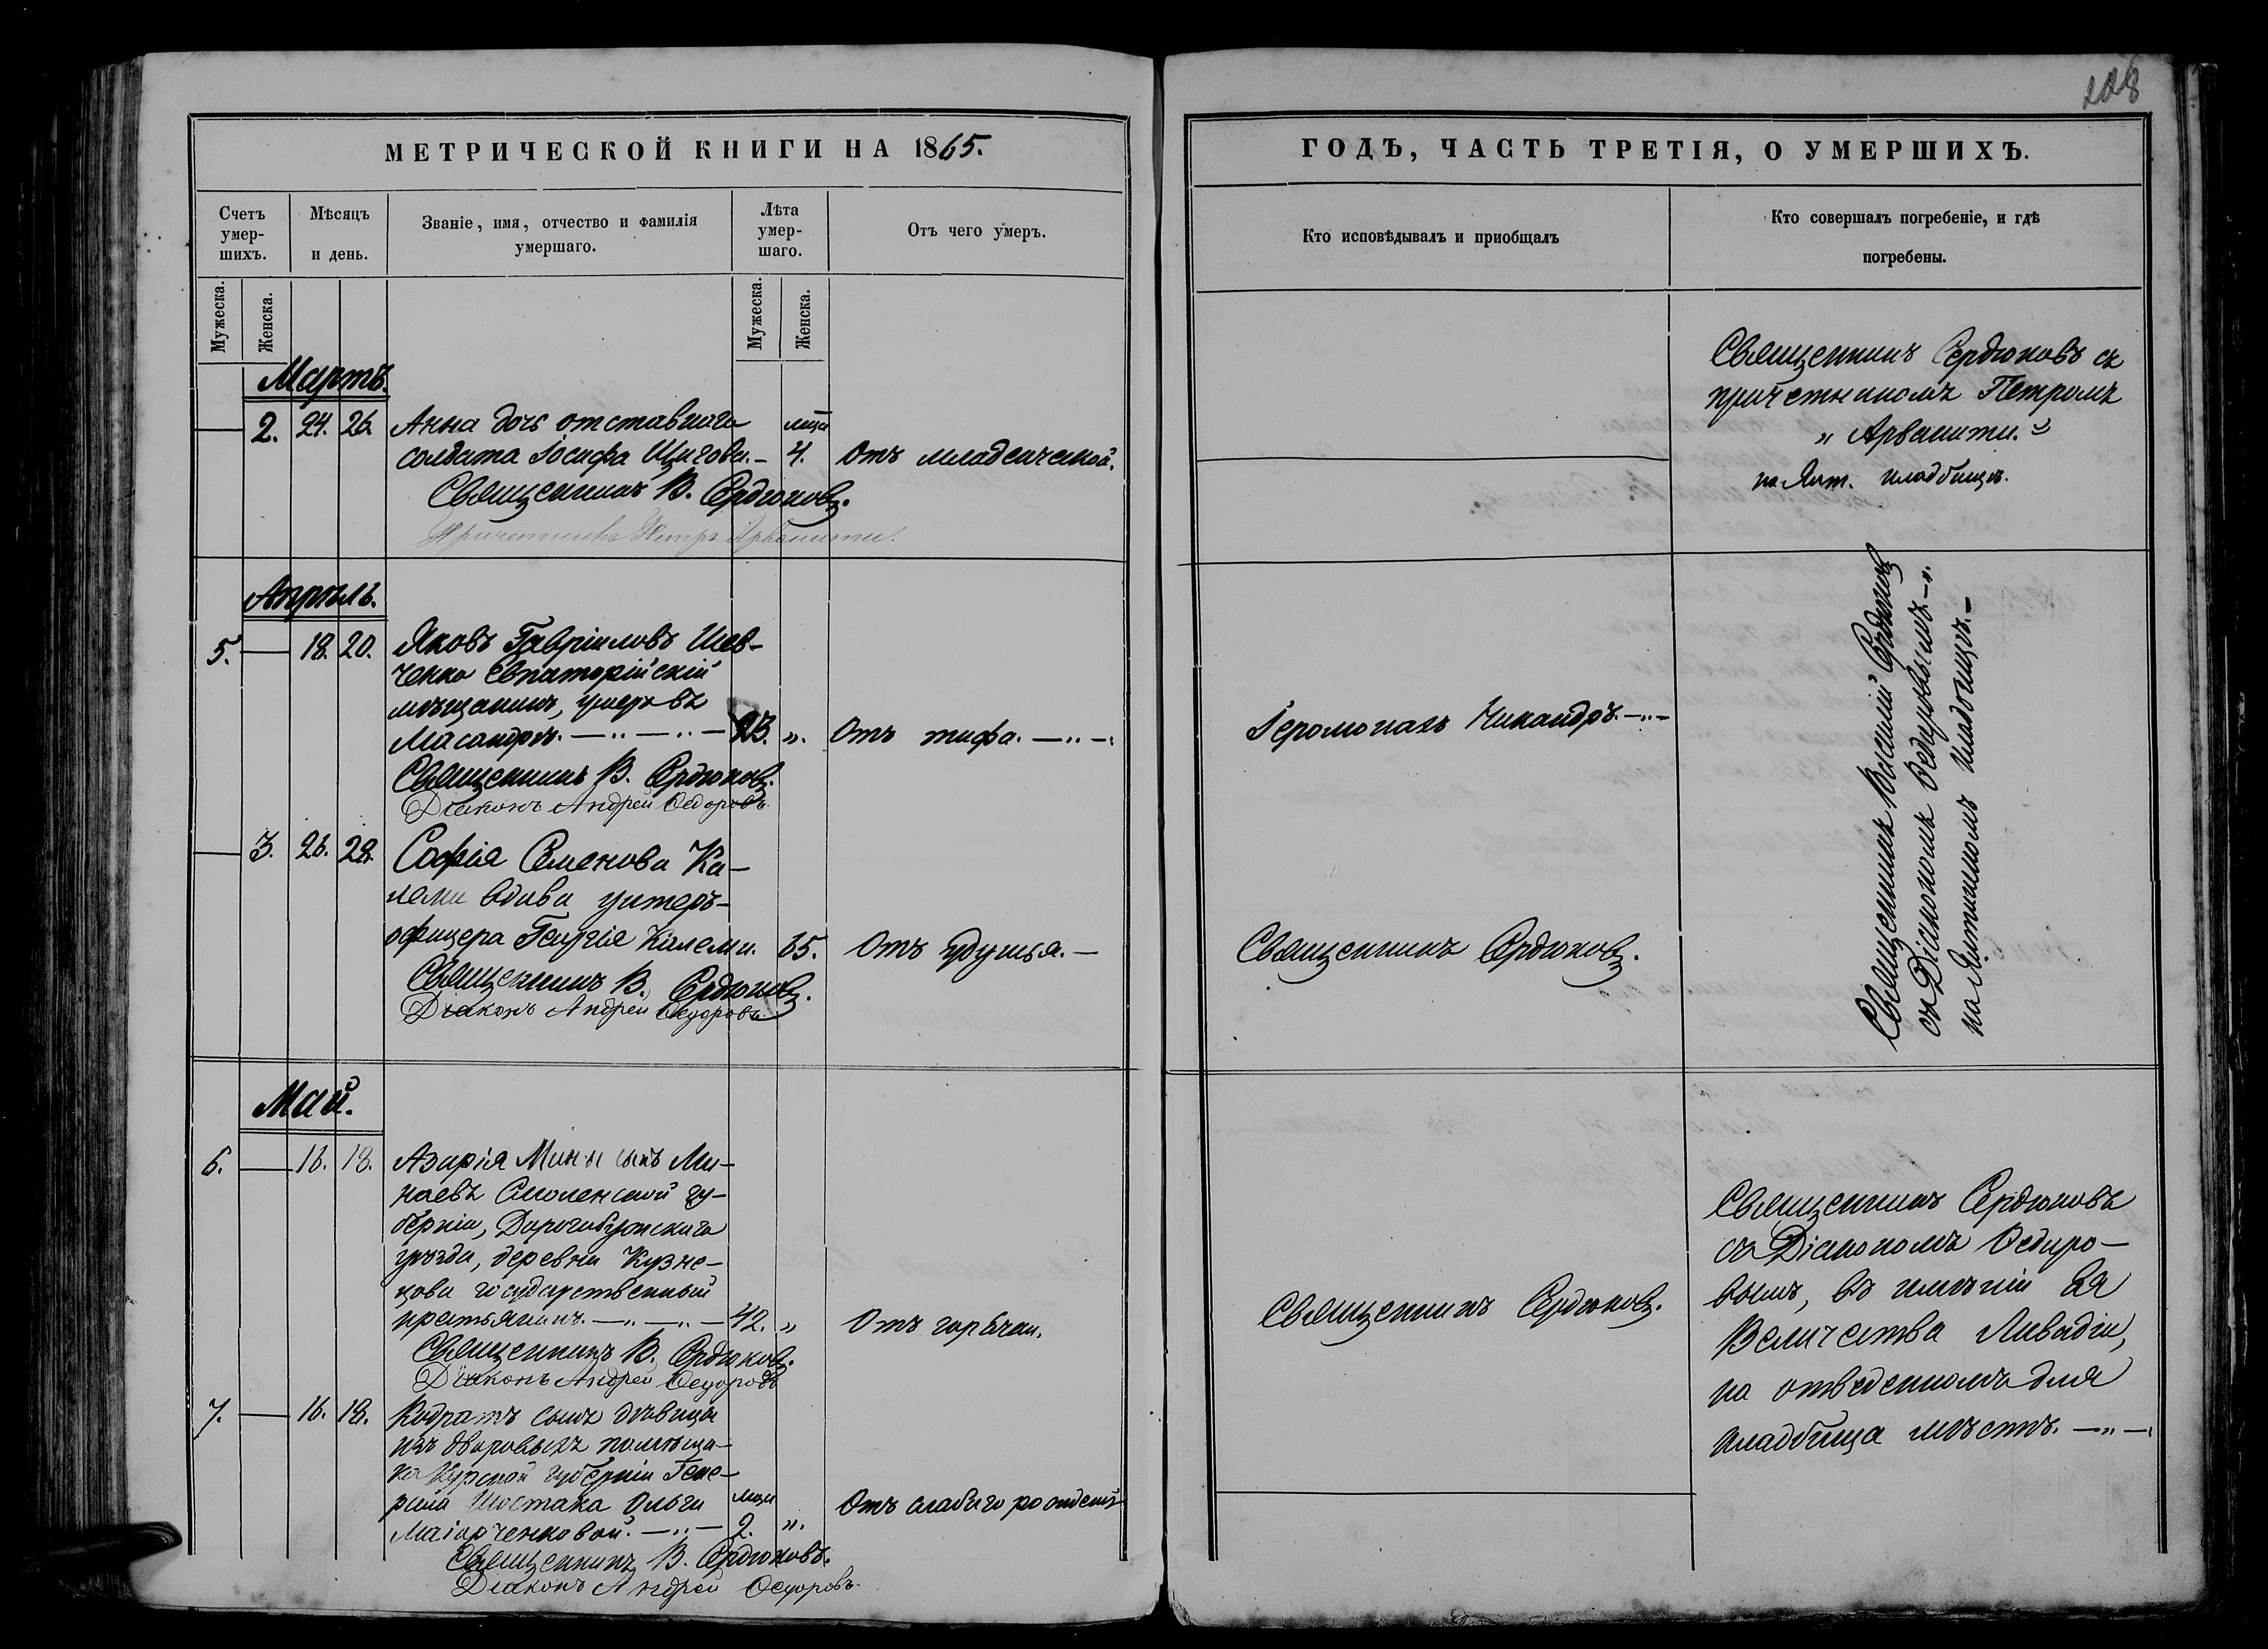 МЕТРИЧЕСКОЙ КНИГИ НА 1865.
Счетъ умер-шихъ.
Мѣсяцъ и день.
Званіе, имя, отчество и фамилія
умершаго.
Лѣта умер-шаго.
Отъ чего умеръ.
Мужеска.
Женска.
Мужеска.
Женска.
Мартъ.
2. 24. 26. Анна дочь отставнаго мѣс
солдата Іосифа Щигова.– 4. Отъ младенческой.
Священникъ В. Сердюковъ.
Причетникъ Петръ Арванити.
Апрѣль.
5. — 18. 20. Яковъ Гавріиловъ Шев-
ченко Евпаторійскій
мѣщанинъ, умеръ въ
Масандрѣ. —„—„— 23. „. Отъ тифа. —„—
Священникъ В. Сердюковъ.
Діаконъ Андрей Ѳедоровъ.
— 3. 26. 28. Софія Семенова Ка-
леми вдова унтеръ-
офицера Георгія Калеми. 65. Отъ удушья. —
Священникъ В. Сердюковъ.
Діаконъ Андрей Ѳедоровъ.
Май.
6. — 16. 18. Азарія Мины сынъ Ми-
наевъ Смоленской гу-
берніи, Дорогобужскаго
уѣзда, деревни Кузне-
цова государственный
крестьянинъ. —„—„— 42. „ Отъ горячки.
Священникъ В. Сердюковъ.
Діаконъ Андрей Ѳедоровъ
7. — 16. 18. Кодратъ сынъ дѣвицы
изъ дворовыхъ помѣщи-
ка Курской губерніи Гене-
рала Шостака Ольги
Маіорченковой. —„— 2. „. Отъ слабаго рожденія
Священникъ В. Сердюковъ.
Діаконъ Андрей Ѳедоровъ.
ГОДЪ, ЧАСТЬ ТРЕТІЯ, О УМЕРШИХЪ.
Кто исповѣдывалъ и приобщалъ
Кто совершалъ погребеніе, и гдѣ
погребены.
Священникъ Сердюковъ съ
причетникомъ Петромъ
„ Арванити. „
на Ялт. кладбищѣ.
Іеромонахъ Никандръ. —„—
Священникъ Сердюковъ.
Священникъ Василій Сердюковъ
съ Діакономъ Ѳедоровымъ. —„.
на Ялтинскомъ кладбищѣ. —
Священникъ Сердюковъ.
Священникъ Сердюковъ
съ Діакономъ Ѳедоро-
вымъ, въ имѣніи Ея
Величества Ливадіи,
на отведенномъ для
кладбища мѣстѣ. —„—